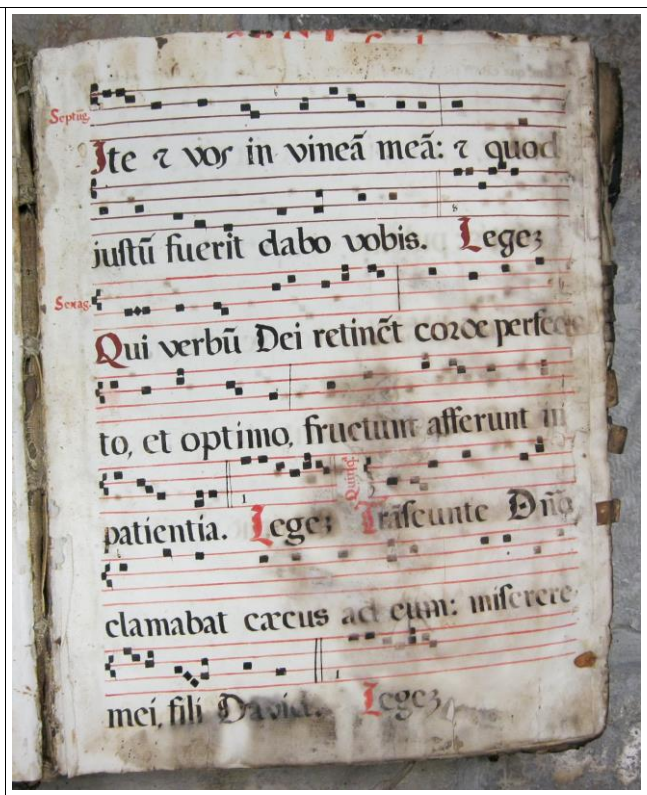 Septũg.
Ite ⁊ vos in vineã meã: ⁊ quod
justũ fuerit dabo vobis. Legeʒ
Sexag.
Qui verbũ Dei retinẽt corde perfec
to, et optimo, fructum afferunt in
patientia. Legeʒ Quinq. Trãseunte Dño
clamabat cæcus ad eum: miserere
mei, fili David. Legeʒ